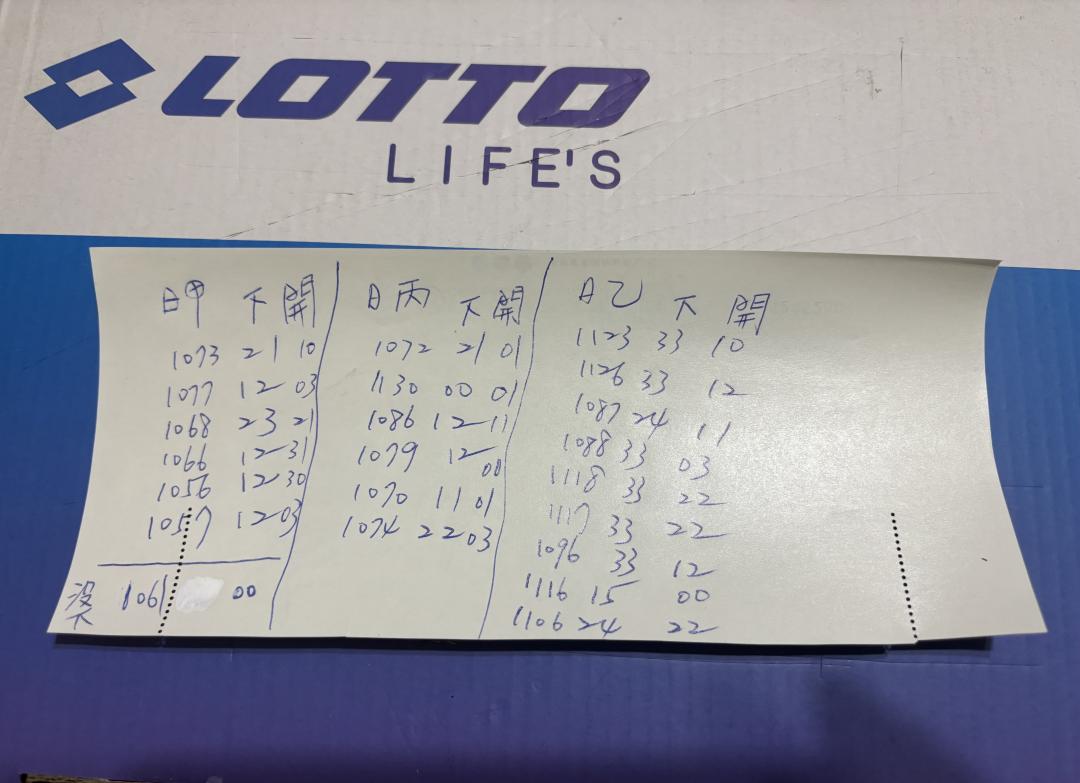 LOTTO
LIFE'S
日甲 下 開
1073 21 10
1077 12 03
1068 23 21
1066 12 31
1056 12 30
1057 12 03
沒下 1061 00
日丙 下 開
1072 21 01
1130 00 01
1086 12 11
1079 12 00
1070 11 01
1074 22 03
日乙 下 開
1123 33 10
1126 33 12
1087 24 11
1088 33 03
1118 33 22
1117 33 22
1096 33 12
1116 15 00
1106 24 22